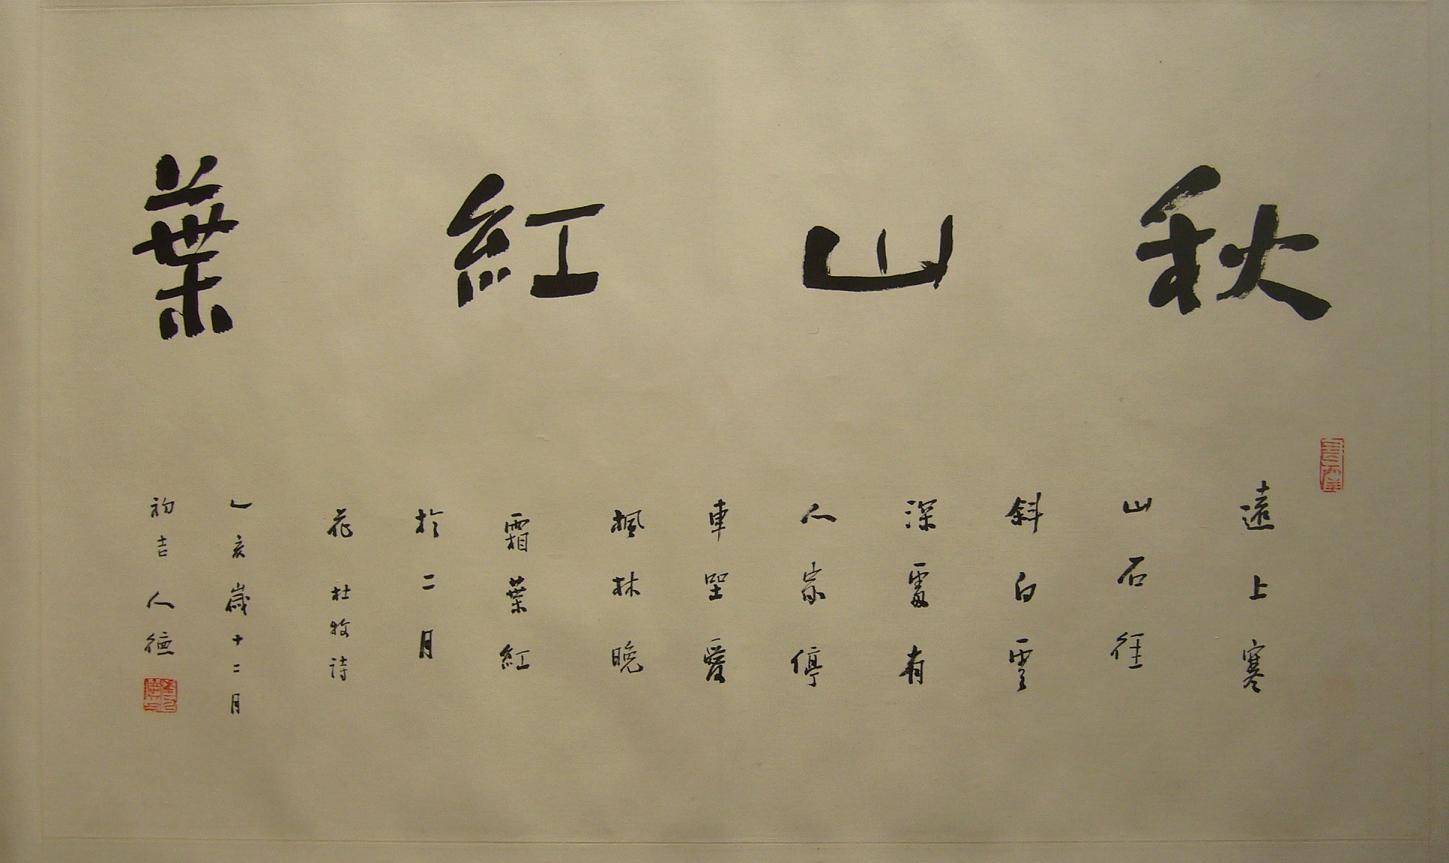 秋山紅葉
遠上寒
山石徑
斜白雲
深處有
人家停
車坐愛
楓林晚
霜葉紅
於二月
花 杜牧詩
乙亥歲十二月
初吉 人德